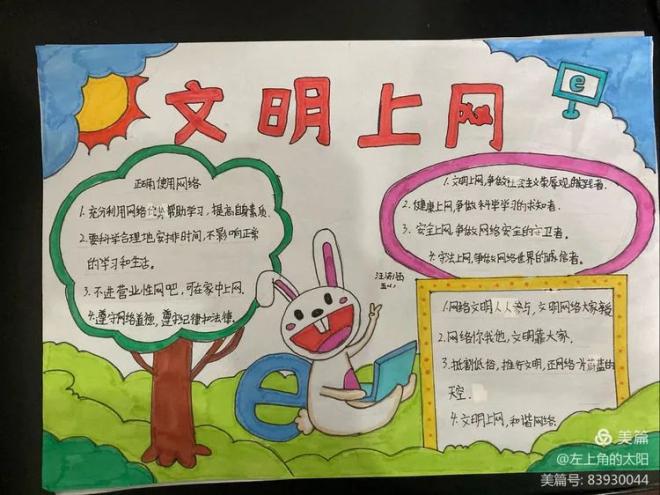 文明上网
e
正确使用网络
1.充分利用网络 帮助学习，提高自身素质.
2.要科学合理地安排时间,不影响正常
的学习和生活。
3.不进营业性网吧,可在家中上网.
4.遵守网络道德,遵守纪律和法律.
1.文明上网,争做社会主义荣辱观的践行者.
2.健康上网,争做科学学习的求知者.
3.安全上网,争做网络安全的守卫者.
4.守法上网,争做网络世界的诚信者.
1.网络文明人人参与,文明网络大家
2.网络你我他,文明靠大家.
3.抵制低俗,推行文明,还网络一片蔚蓝的
天空.
4.文明上网,和谐网络.
e
美篇
@左上角的太阳
美篇号: 83930044